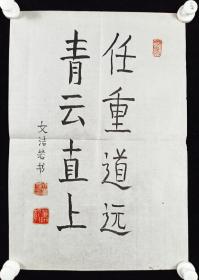 任重道远
青云直上
文洁若书